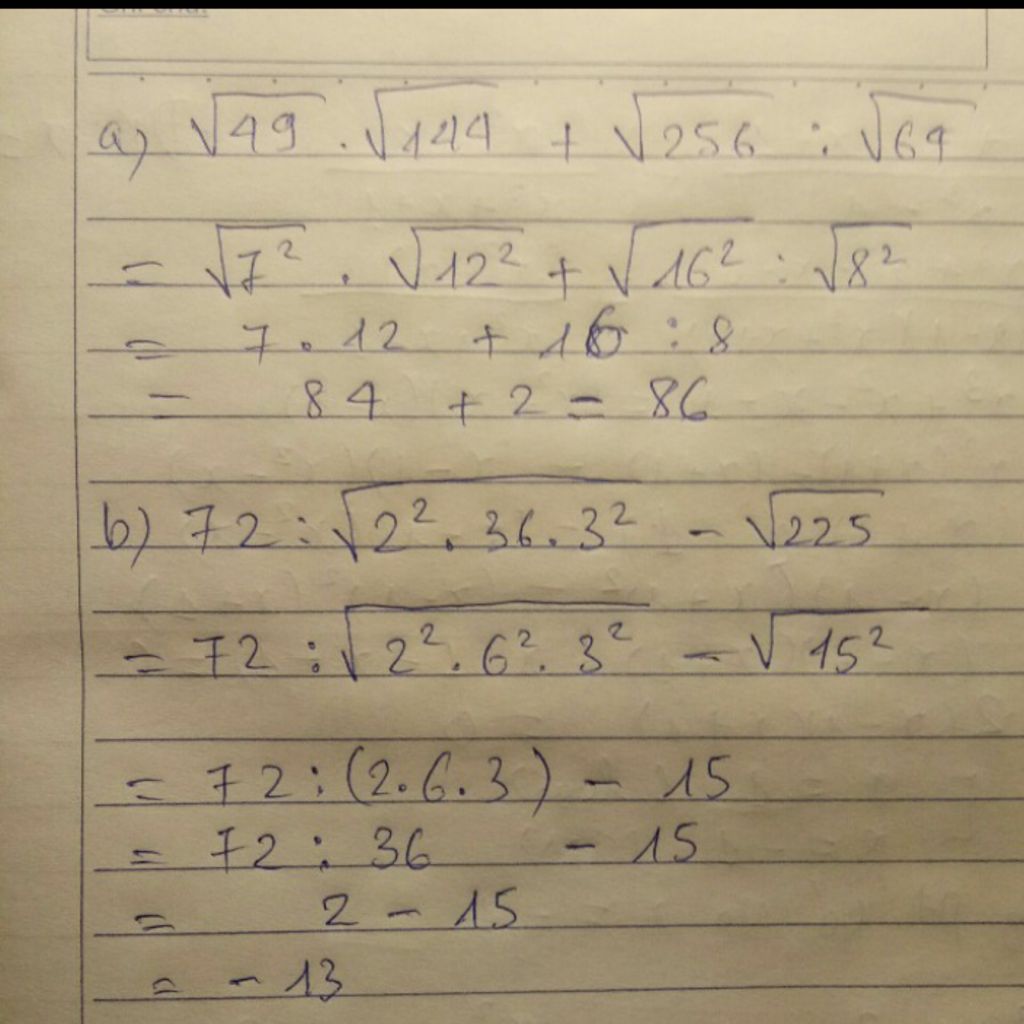 a) √49 . √144 + √256 : √64
= √7² . √12² + √16² : √8²
= 7 . 12 + 16 : 8
= 84 + 2 = 86
b) 72 : √2² . 36 . 3² - √225
= 72 : √2² . 6² . 3² - √15²
= 72 : (2 . 6 . 3) - 15
= 72 : 36 - 15
= 2 - 15
= - 13